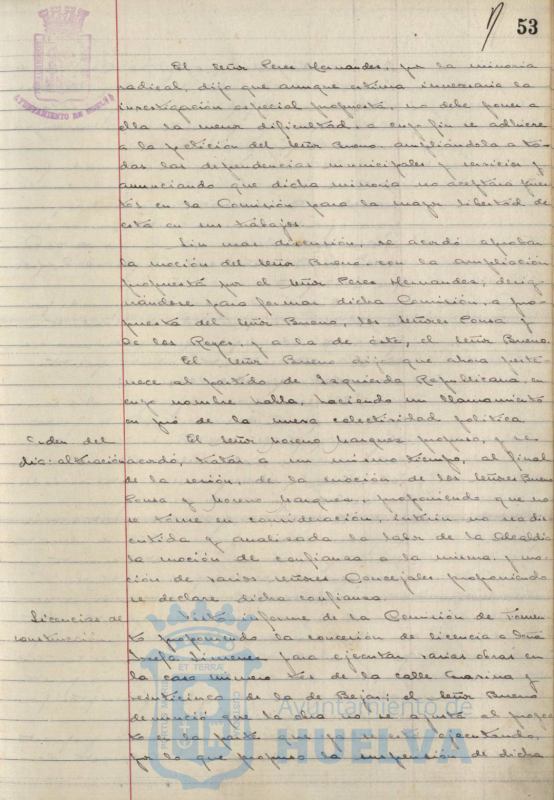 53
AYUNTAMIENTO DE HUELVA
El Señor Peres Hernandes, por la minoria
radical, dijo que aunque estima innecesaria la
investigación especial propuesta, no debe poner a
ella la menor dificultad, a cuyo fin se adhiere
a la petición del Señor Bueno, ampliándola a to-
das las dependencias municipales y servicios y
anunciando que dicha minoria no aceptará pues-
tos en la Comisión para la mayor libertad de
ésta en sus trabajos.
Sin mas discusión, se acordó aprobar
la moción del Señor Bueno, con la ampliación
propuesta por el Señor Peres Hernandes, desig-
nándose para formar dicha Comisión, a pro-
puesta del Señor Bueno, los Señores Ponsa y
De los Reyes, y a la de éste, el Señor Bueno.
El Señor Bueno dijo que ahora perte-
nece al partido de Izquierda Republicana, en
cuyo nombre habla, haciendo un llamamiento
en pró de la nueva colectividad politica
Orden del
dia: alteración
El Señor Moreno Marquez propuso, y se
acordó, tratar a un mismo tiempo, al final
de la sesión, de la moción de los Señores Bueno
Ponsa y Moreno Marquez, proponiendo que no
se tome en consideración, interin no sea dis-
cutida y analizada la labor de la Alcaldia
la moción de confianza a la misma, y mo-
ción de varios señores Concejales proponiendo
se declare dicha confianza.
Licencias de
construcción
Visto informe de la Comisión de Fomen-
to proponiendo la concesión de licencia a Doña
Josefa Jimenez para ejecutar varias obras en
la casa número tres de la calle Marina y
veinticinco de la de Bejar; el Señor Bueno
denunció que la obra no se ajusta al proyec-
to en la parte que ya se está ejecutando,
por lo que propuso la suspensión de dicha
Ayuntamiento de
HUELVA